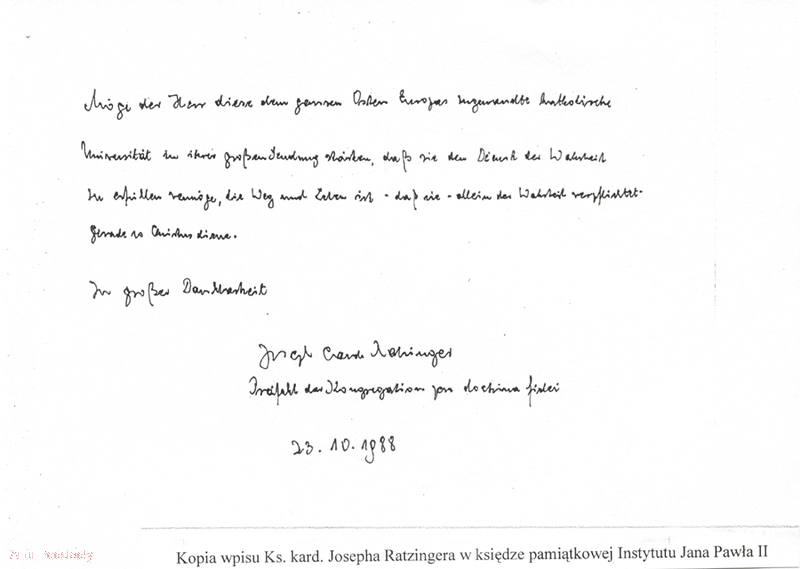 Möge der Herr diese dem ganzen Osten Europas zugewandte katholische
Universität in ihrer großen Sendung stärken, daß sie den Dienst der Wahrheit
zu erfüllen vermöge, die Weg und Leben ist - daß sie - allein der Wahrheit verpflichtet -
gerade so Christus diene.
In großer Dankbarkeit
Joseph Card. Ratzinger
Präfekt der Kongregation pro doctrina fidei
23.10.1988
Kopia wpisu Ks. kard. Josepha Ratzingera w księdze pamiątkowej Instytutu Jana Pawła II